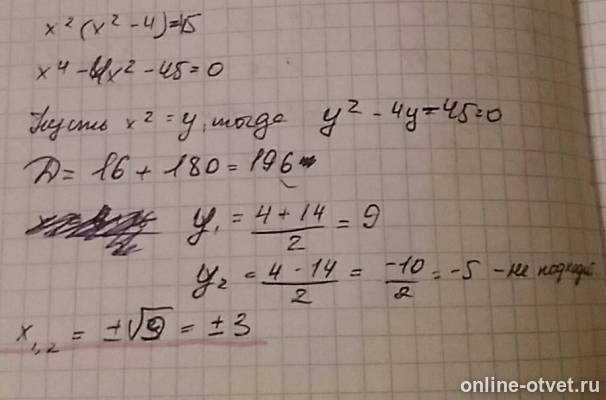 x² (x² - 4) = 45
x⁴ - 4x² - 45 = 0
Пусть x² = y, тогда y² - 4y - 45 = 0
D = 16 + 180 = 196
y₁ = (4 + 14)/2 = 9
y₂ = (4 - 14)/2 = -10/2 = -5 - не подходит
x₁,₂ = ±√9 = ±3
online-otvet.ru